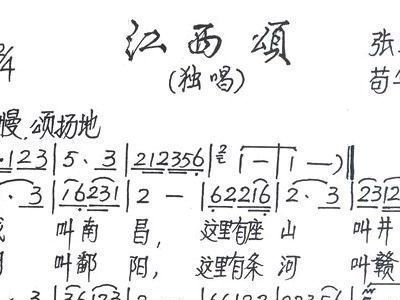 江西颂
2/4 (独唱) 张
苟
慢 颂扬地
123 | 5 · 3 | 212356 | 2/4 1 — | 1 — ) ‖
· 3 | 16231 | 2 — | 62216 | 2 · 3 | 2312
叫南昌, 这里有座山 叫井
叫鄱阳, 这里有条河 叫赣